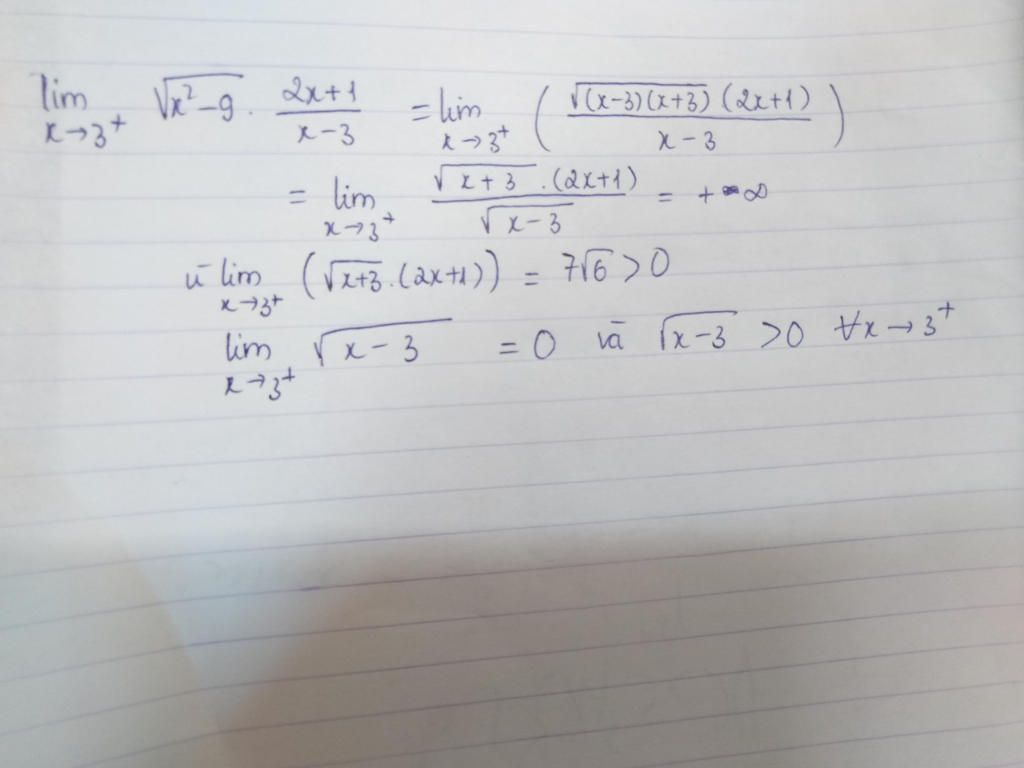 lim x→3⁺ √(x²-9) · (2x+1)/(x-3) = lim x→3⁺ ( √((x-3)(x+3)) (2x+1) / (x-3) )
= lim x→3⁺ √(x+3) · (2x+1) / √(x-3) = +∞
vì lim x→3⁺ (√(x+3) · (2x+1)) = 7√6 > 0
lim x→3⁺ √(x-3) = 0 và √(x-3) > 0 ∀x→3⁺